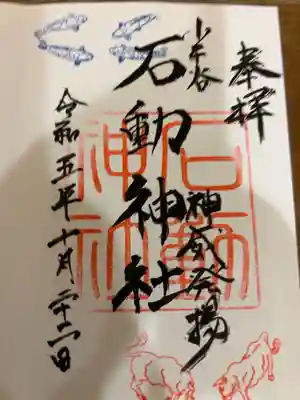 奉拝
小千谷
神威発揚
石動神社
令和五年十月二十二日
石動
神社